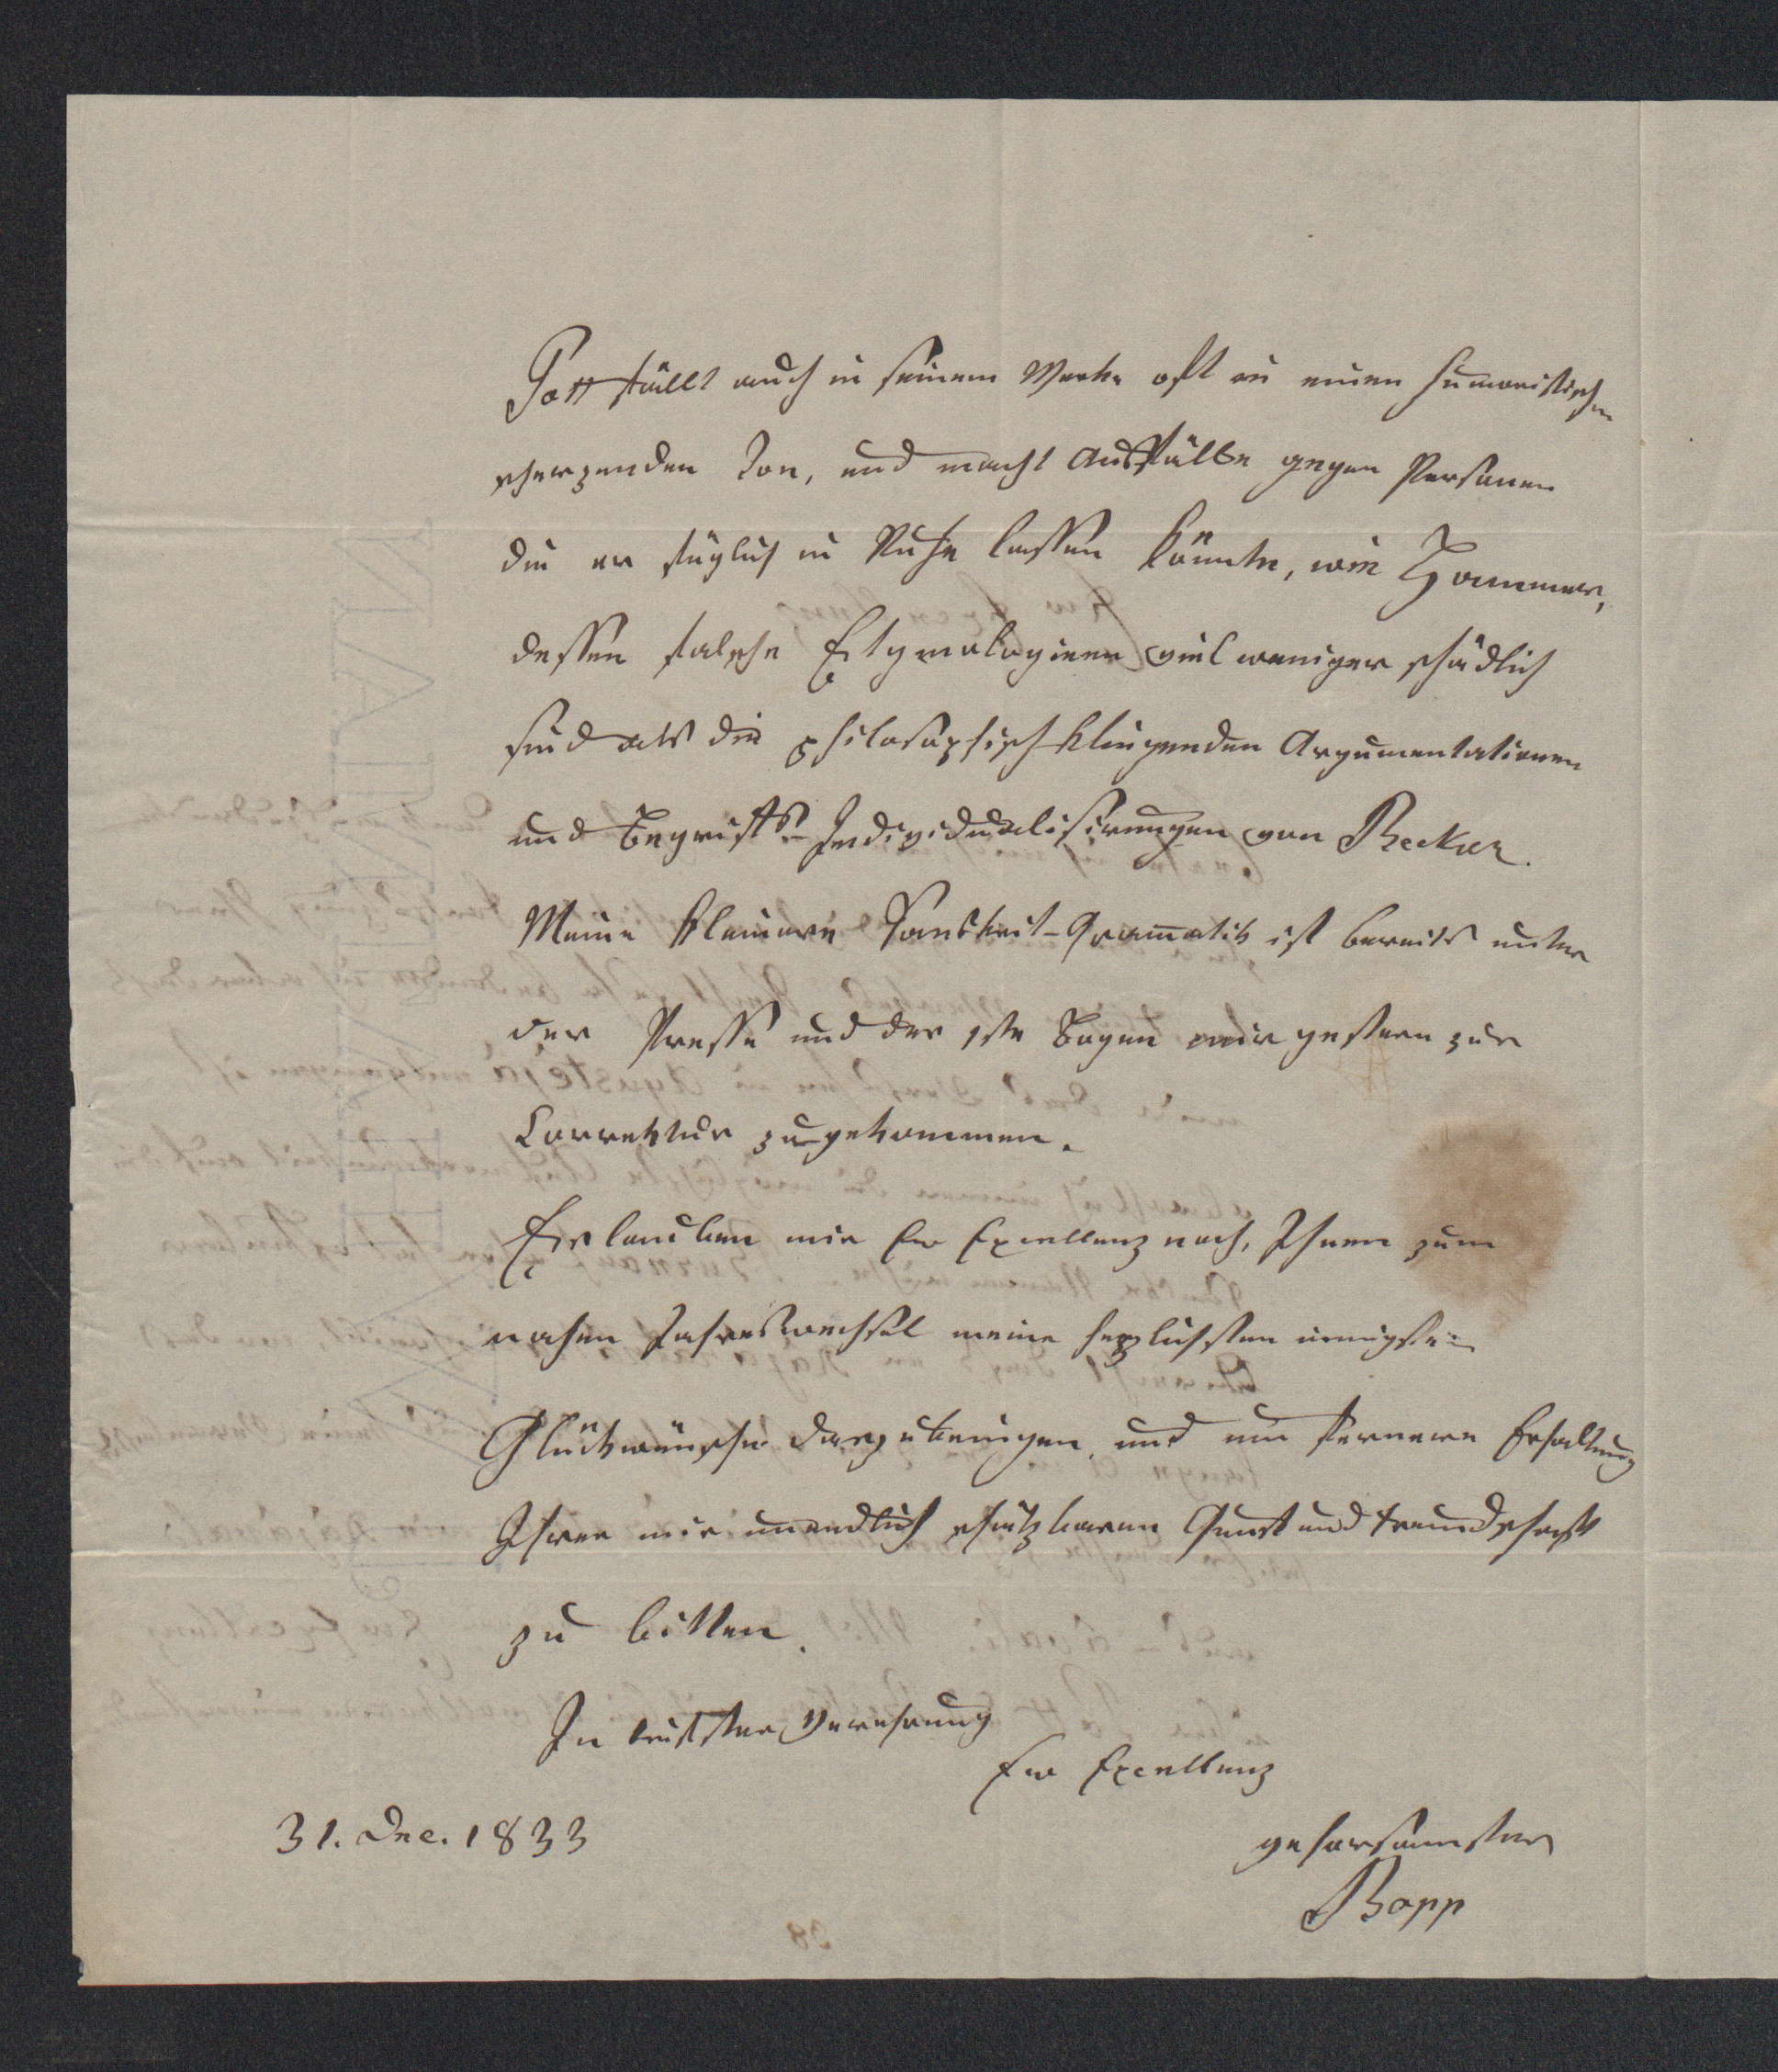 Pott fällt auch in seinem Werke oft in einen humoristischen
scherzenden Ton, und macht Ausfälle gegen Personen
die er füglich in Ruhe lassen könnte, wie Hammer,
dessen falsche Etymologieen viel weniger schädlich
sind als die philosophisch klingenden Argumentationen
und Begriffs-Individualisirungen von Becker.
Meine kleinere Sanskrit-Gram̄atik ist bereits unter
der Presse und der 1ste Bogen mir gestern zur
Correktur zugekommen.
Erlauben mir Ew Excellenz noch, Ihnen zum
nahen Jahreswechsel meine herzlichsten innigsten
Glückwünsche darzubringen, und um fernere Erhaltung
Ihrer mir unendlich schätzbaren Gunst und Freundschaft
zu bitten.
In tiefster Verehrung
Ew Excellenz
31. Dec. 1833
gehorsamster
Bopp